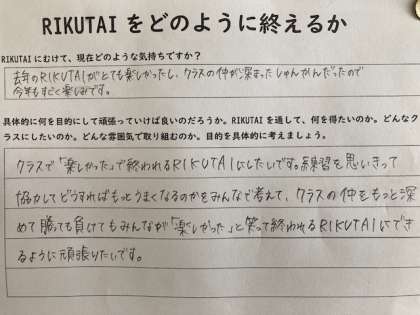 RIKUTAI をどのように終えるか
RIKUTAI にむけて、現在どのような気持ちですか？
去年のRIKUTAIがとても楽しかったし、クラスの仲が深まったしゅんかんだったので
今年もすごく楽しみです。
具体的に何を目的にして頑張っていけば良いのだろうか。RIKUTAI を通して、何を得たいのか。どんな
クラスにしたいのか。どんな雰囲気で取り組むのか。目的を具体的に考えましょう。
クラスで「楽しかった」で終われるRIKUTAIにしたいです。練習を思いきって
協力してどうすればもっとうまくなるのかをみんなで考えて、クラスの仲をもっと深
めて勝っても負けてもみんなが「楽しかった」と笑って終われるRIKUTAIにでき
るように頑張りたいです。